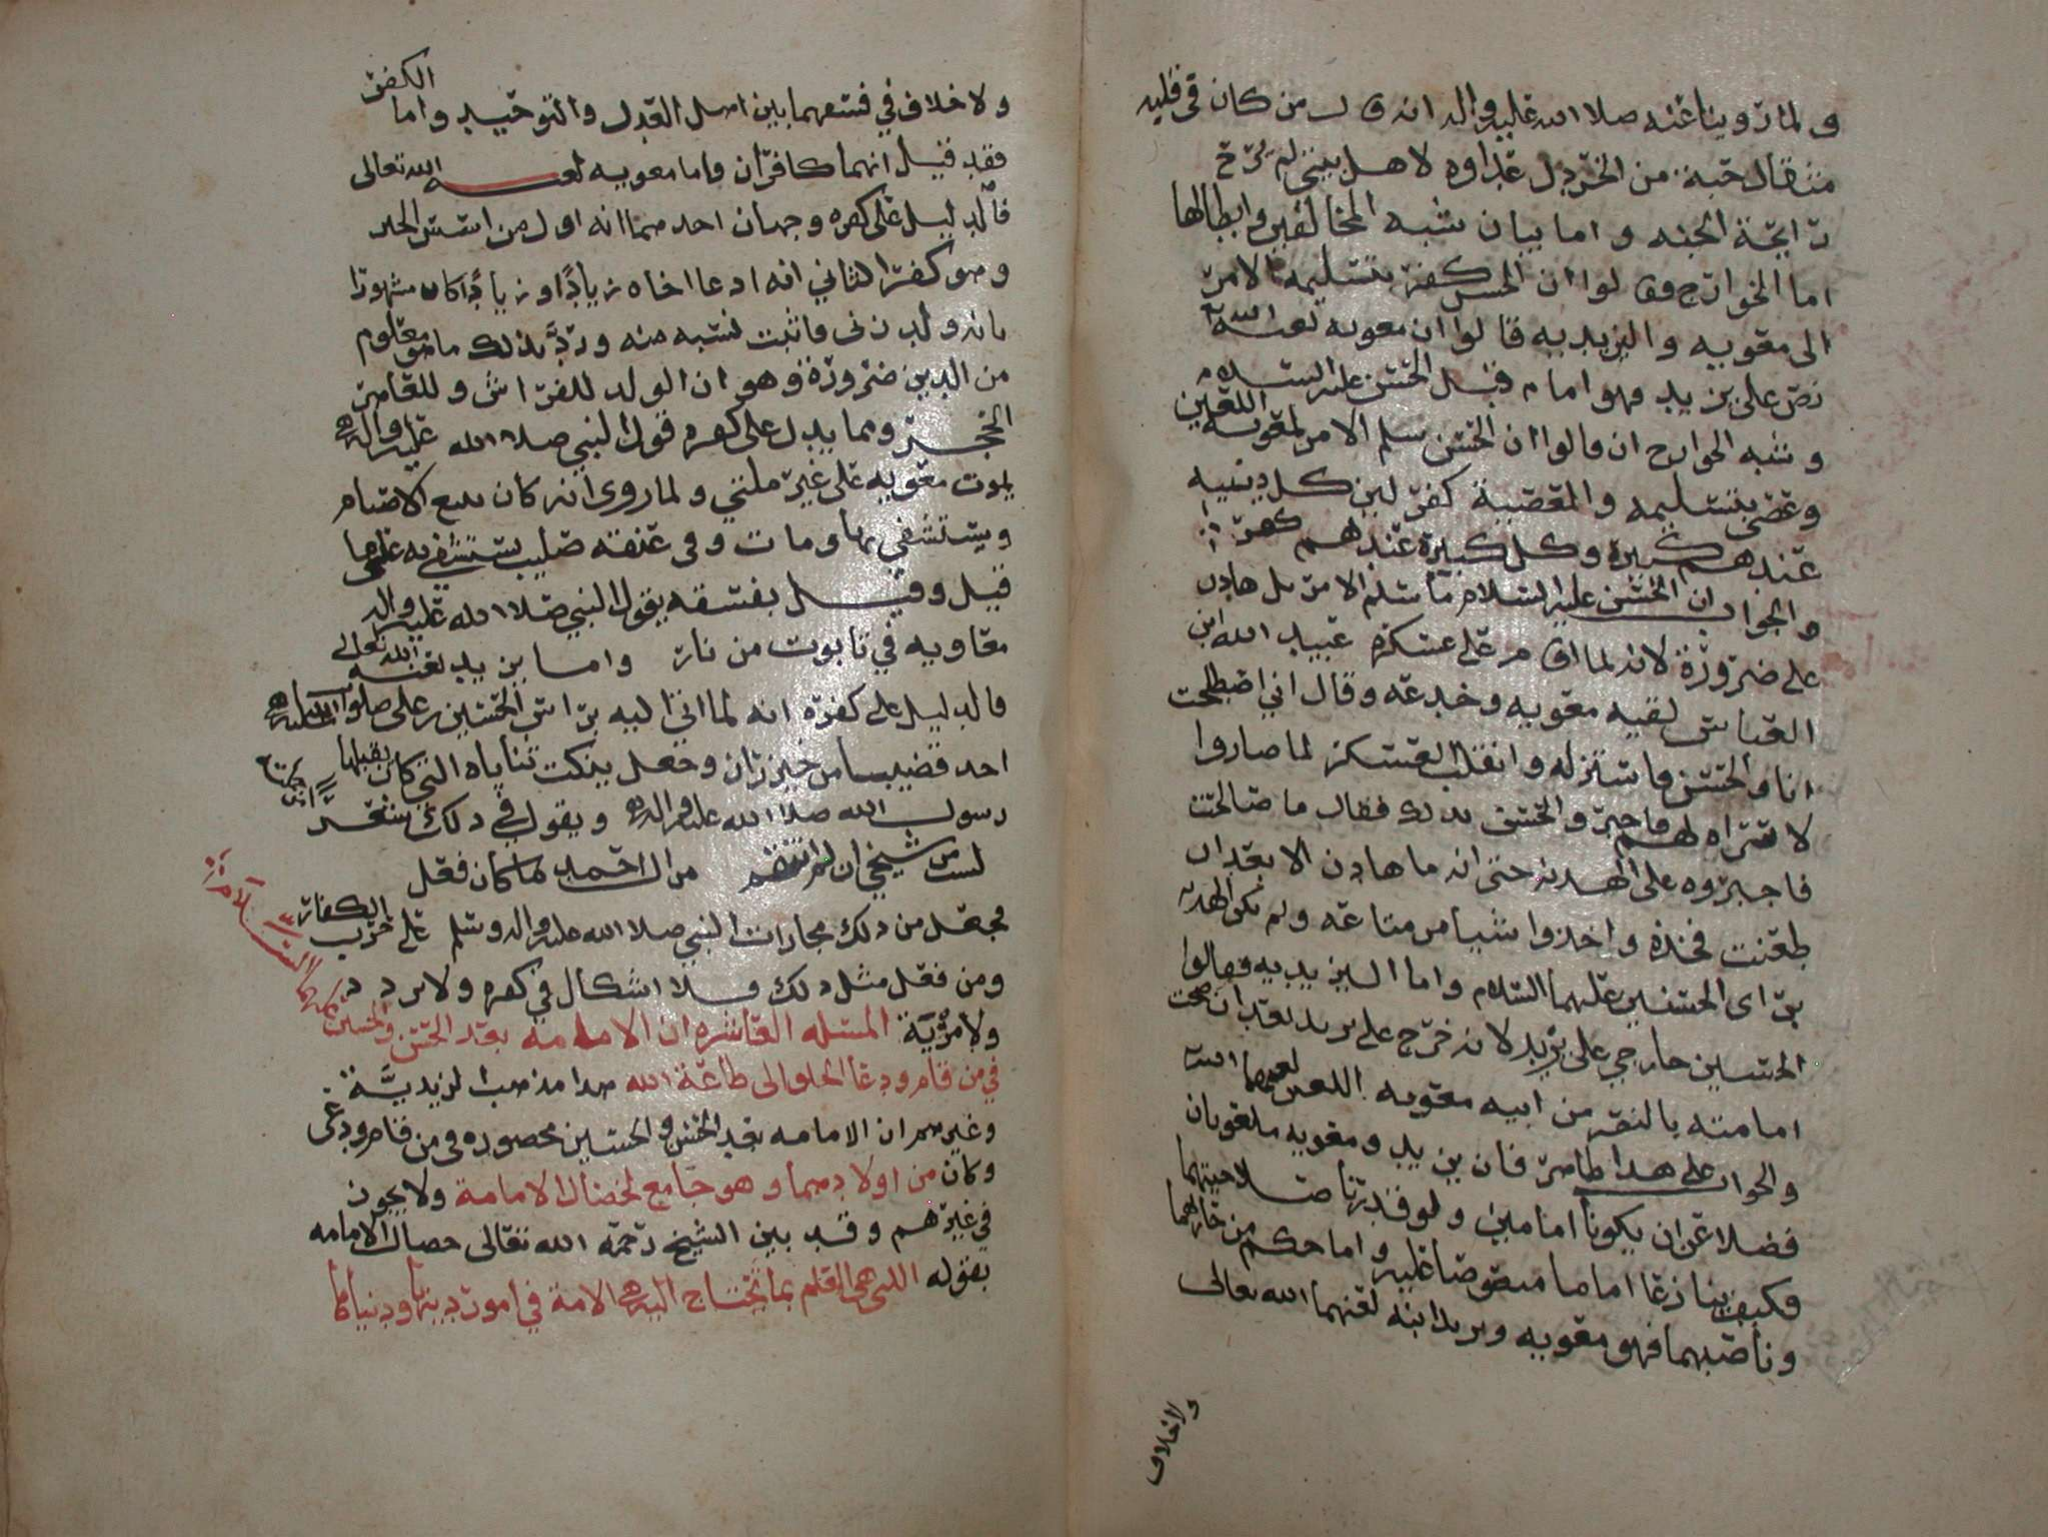 ولما روينا عنه صلا الله عليه واله انه قال من كان في قلبه
مثقال حبة من الخردل عداوه لاهل بيتي لم يرح
رايحة الجنه واما بيان شبه المخالفين وابطالها
اما الخوارج فقالوا ان الحسن كفر بتسليمه الامر
الى معويه واليزيديه قالوا ان معويه لعنه الله
نص على يزيد فهو امام قبل الحسن عليه السلام
وشبه الخوارج ان قالوا ان الحسن سلم الامر لمعويه اللعين
وعصى بتسليمه والمعصية كفر لين كل دنيه
عندهم كبيرة وكل كبيرة عندهم كفر
والجواب ان الحسن عليه السلام ما سلم الامر بل هادن
على ضرورة لانه لما اقام على عسكره عبيد الله ابن
العباس لقيه معويه وخدعه وقال اني اصطلحت
انا والحسن فاستنزله وانقلب العسكر لما صاروا
لا يراه لهم فاخبروا الحسن بذلك فقال ما صالحت
فاجبروه على الهدنه حتى انه ما هادن الا بعد ان
طعنت فخذه واخذوا شيا من متاعه ولم تكن الهدنه
براى الحسنين عليهما السلام واما اليزيديه فقالوا
الحسين خارجي على يزيد لانه خرج على يزيد بعد ان صحت
امامته بالنص من ابيه معويه اللعين لعنهما الله
والجواب على هذا ظاهر فان يزيد ومعويه ملعونان
فضلا عن ان يكونا امامين ولو قدرنا صلاحيتهما
فكيف ينازعا اماما منصوصا عليه واما حكم من حاربهما
وناصبهما فهو معويه ويزيد ابنه لعنهما الله تعالى
ولا خلاف
ولا خلاف في فسقهما بين اهل العدل والتوحيد واما الكفر
فقد قيل انهما كافران فاما معويه لعنه الله تعالى
فالدليل على كفره وجهان احدهما انه اول من اسس الجبر
وهو كفر الثاني انه ادعا اخاه زيادًا وزيادًا كان مشهورا
بانه ولد زنى فاثبت نسبه منه ورد بذلك ما هو معلوم
من الدين ضرورة وهو ان الولد للفراش وللعاهر
الحجر ومما يدل على كفره قول النبي صلا الله عليه واله
يموت معويه على غير ملتي ولما روى انه كان يبيع الاصنام
ويستشفي بها ومات وفي عنقه صليب يستشفي به على ما
قيل وقيل بفسقه بقول النبي صلا الله عليه واله
معاويه في تابوت من نار واما يزيد لعنه الله تعالى
فالدليل على كفره انه لما اتي اليه براس الحسين بن علي صلوات الله عليه
احد قضيبا من خيزران وجعل ينكت ثناياه التي كان يقبلها
رسول الله صلا الله عليه واله ويقول في ذلك شعرًا
لست من شيخي ان لم انتقم من ال احمد ما كان فعل
فجعل من ذلك مجازات النبي صلا الله عليه واله وسلم على حرب الكفار
ومن فعل مثل ذلك فلا اشكال في كفره ولا تردد
ولا مرية المسئله العاشره ان الامامه بعد الحسن والحسين
في من قام ودعا الخلق الى طاعة الله هذا مذهب الزيدية
وغيرهم ان الامامه بعد الحسن والحسين محصوره في من قام ودعى
وكان من اولادهما وهو جامع لخصال الامامة ولا يجوز
في غيرهم وقد بين الشيخ رحمة الله تعالى خصال الامامه
بقوله التي هي العلم بما تحتاج اليه الامة في امور دينها ودنياها